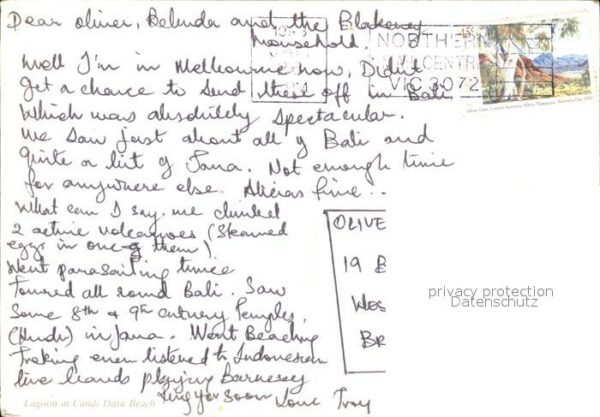 Dear oliver, Belinda and the Blakeney
Household,
Well I'm in Melbourne now, Didn't
get a chance to send these off in Bali
Which was absolutely spectacular.
We saw just about all of Bali and
quite a lot of Java. Not enough time
for anywhere else. Alicias fine...
What can I say. we climbed
2 active volcanoes (steamed
eggs in one of them).
Went parasailing twice
Toured all round Bali. Saw
Some 8th & 9th century Temples,
(Hindu) in Java. Went Beaching
Treking even listened to Indonesian
live bands playing Barnesey
Love Troy
Lagoon at Candi Dasa Beach
NORTHERN
CENTRE
VIC 3072
OLIVE
19 B
WES
BR
privacy protection
Datenschutz